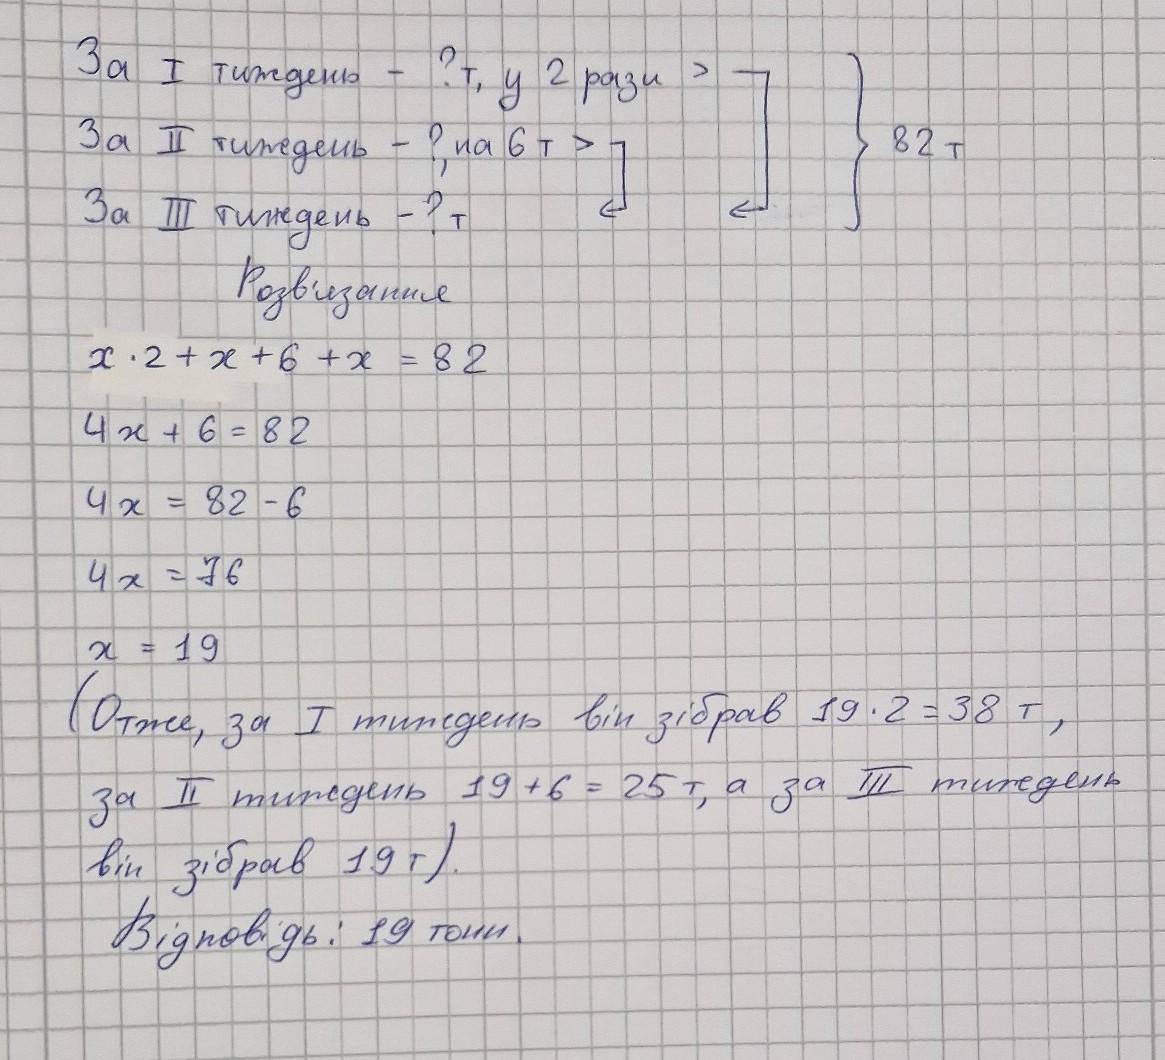 За I тиждень - ? т, у 2 рази >
За II тиждень - ?, на 6 т >
82 т
За III тиждень - ? т
Розв'язання
x · 2 + x + 6 + x = 82
4x + 6 = 82
4x = 82 - 6
4x = 76
x = 19
(Отже, за I тиждень він зібрав 19 · 2 = 38 т,
за II тиждень 19 + 6 = 25 т, а за III тиждень
він зібрав 19 т).
Відповідь: 19 тонн.